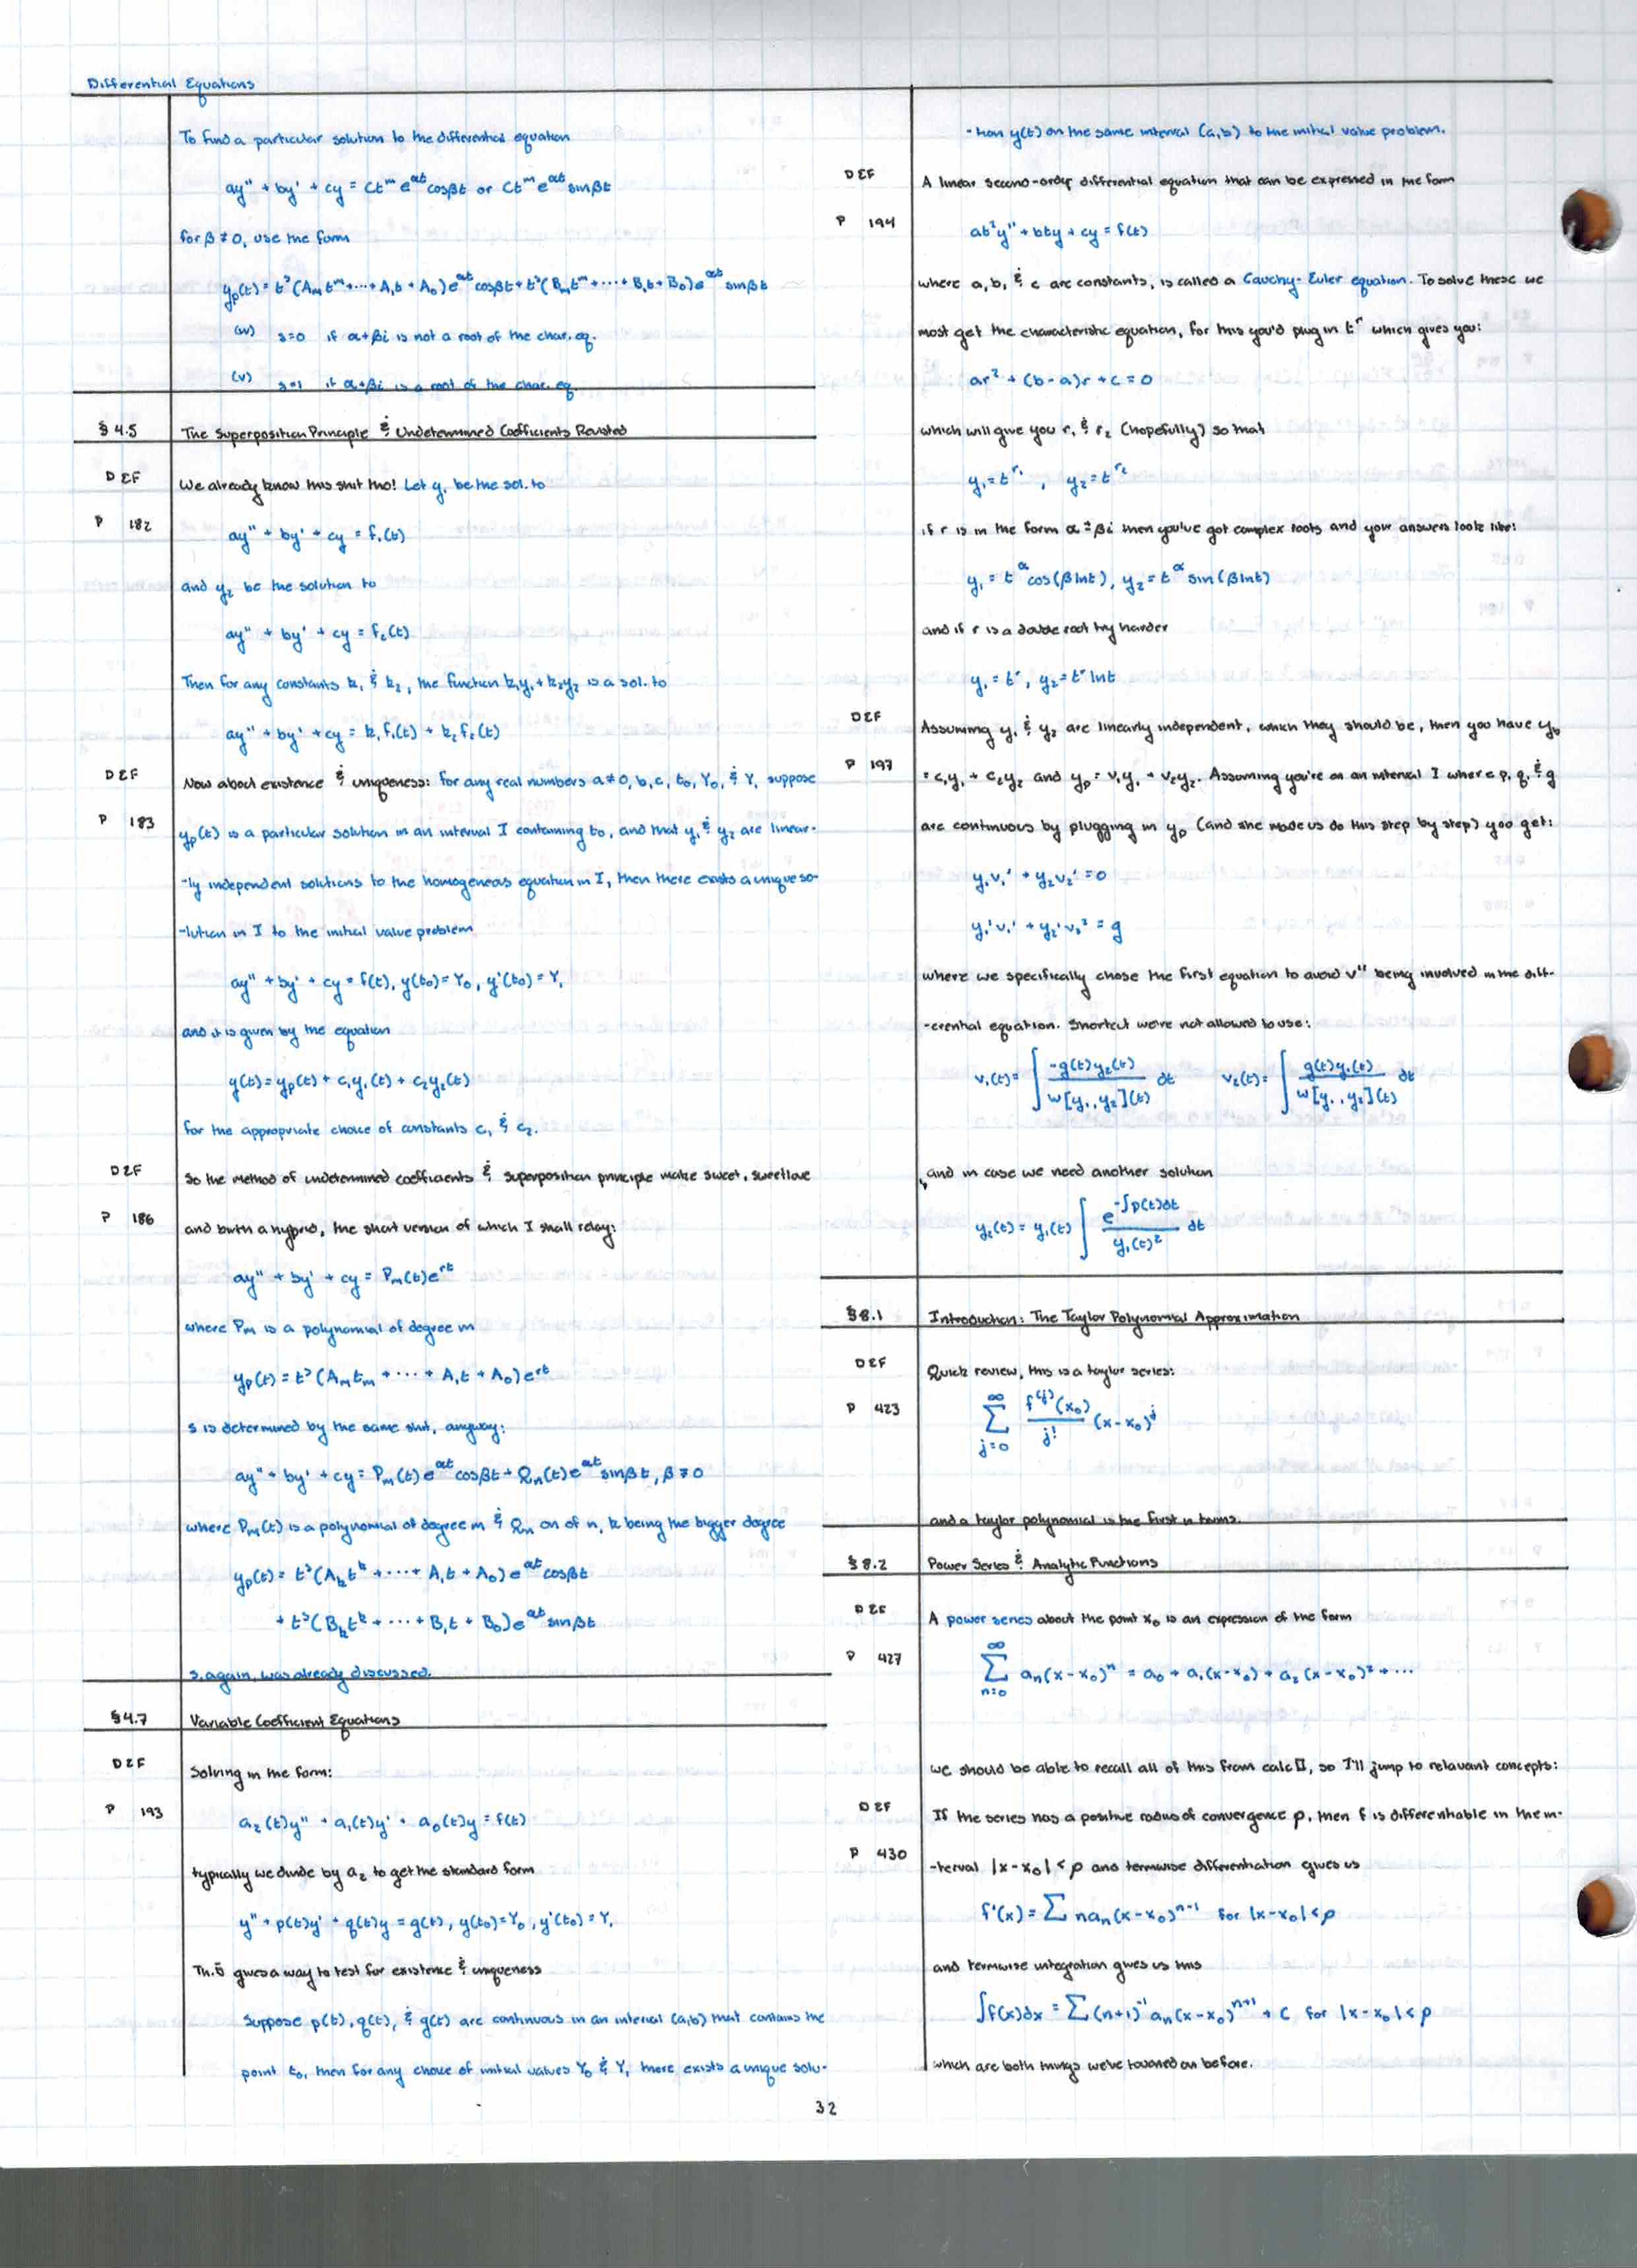 Differential Equations
To find a particular solution to the differential equation
ay'' + by' + cy = Ct^m e^αt cosβt or Ct^m e^αt sinβt
for β ≠ 0, use the form
y_p(t) = t^s(A_m t^m + ... + A_1 t + A_0)e^αt cosβt + t^s(B_m t^m + ... + B_1 t + B_0)e^αt sinβt
(iv) s=0 if α+βi is not a root of the char. eq.
(v) s=1 if α+βi is a root of the char. eq.
§ 4.5 The Superposition Principle & Undetermined Coefficients Revisited
DEF We already know this shit tho! Let y_1 be the sol. to
P 182 ay'' + by' + cy = f_1(t)
and y_2 be the solution to
ay'' + by' + cy = f_2(t)
Then for any constants k_1 & k_2, the function k_1y_1 + k_2y_2 is a sol. to
ay'' + by' + cy = k_1 f_1(t) + k_2 f_2(t)
DEF Now about existence & uniqueness: for any real numbers a≠0, b, c, t_0, Y_0, & Y_1 suppose
P 183 y_p(t) is a particular solution in an interval I containing t_0, and that y_1 & y_2 are linear-
-ly independent solutions to the homogeneous equation in I, then there exists a unique so-
-lution in I to the initial value problem
ay'' + by' + cy = f(t), y(t_0) = Y_0, y'(t_0) = Y_1
and it is given by the equation
y(t) = y_p(t) + c_1y_1(t) + c_2y_2(t)
for the appropriate choice of constants c_1 & c_2.
DEF So the method of undetermined coefficients & superposition principle make sweet, sweet love
P 186 and birth a hybrid, the short version of which I shall relay:
ay'' + by' + cy = P_m(t)e^rt
where P_m is a polynomial of degree m
y_p(t) = t^s(A_m t_m + ... + A_1 t + A_0)e^rt
s is determined by the same shit, anyway:
ay'' + by' + cy = P_m(t)e^αt cosβt + Q_n(t)e^αt sinβt, β ≠ 0
where P_m(t) is a polynomial of degree m & Q_n on of n, k being the bigger degree
y_p(t) = t^s(A_k t^k + ... + A_1 t + A_0)e^αt cosβt
+ t^s(B_k t^k + ... + B_1 t + B_0)e^αt sinβt
s, again, was already discussed.
§ 4.7 Variable Coefficient Equations
DEF Solving in the form:
P 193 a_2(t)y'' + a_1(t)y' + a_0(t)y = f(t)
typically we divide by a_2 to get the standard form
y'' + p(t)y' + q(t)y = g(t), y(t_0) = Y_0, y'(t_0) = Y_1
Th. 5 gives a way to test for existence & uniqueness
Suppose p(t), q(t), & g(t) are continuous in an interval (a,b) that contains the
point t_0, then for any choice of initial values Y_0 & Y_1 there exists a unique solu-
-tion y(t) on the same interval (a,b) to the initial value problem.
DEF A linear second-order differential equation that can be expressed in the form
P 194 at²y'' + bty + cy = f(t)
where a, b, & c are constants, is called a Cauchy-Euler equation. To solve these we
most get the characteristic equation, for this you'd plug in t^r which gives you:
ar² + (b-a)r + c = 0
which will give you r_1 & r_2 (hopefully) so that
y_1 = t^r_1, y_2 = t^r_2
if r is in the form α ± βi then you've got complex roots and your answers look like:
y_1 = t^α cos(β ln t), y_2 = t^α sin(β ln t)
and if r is a double root try harder
y_1 = t^r, y_2 = t^r ln t
DEF Assuming y_1 & y_2 are linearly independent, which they should be, then you have y_h
P 197 = c_1y_1 + c_2y_2 and y_p = v_1y_1 + v_2y_2. Assuming you're on an interval I where p, q, & g
are continuous by plugging in y_p (and she made us do this step by step) you get:
y_1v_1' + y_2v_2' = 0
y_1'v_1' + y_2'v_2' = g
where we specifically chose the first equation to avoid v'' being involved in the diff-
-erential equation. Shortcut we're not allowed to use:
v_1(t) = ∫ -g(t)y_2(t) / W[y_1, y_2](t) dt v_2(t) = ∫ g(t)y_1(t) / W[y_1, y_2](t) dt
and in case we need another solution
y_2(t) = y_1(t) ∫ e^(-∫p(t)dt) / y_1(t)² dt
§ 8.1 Introduction: The Taylor Polynomial Approximation
DEF Quick review, this is a taylor series:
P 423 ∑_{j=0}^∞ f^(j)(x_0) / j! (x-x_0)^j
and a taylor polynomial is the first n terms.
§ 8.2 Power Series & Analytic Functions
DEF A power series about the point x_0 is an expression of the form
P 427 ∑_{n=0}^∞ a_n(x-x_0)^n = a_0 + a_1(x-x_0) + a_2(x-x_0)² + ...
we should be able to recall all of this from calc II, so I'll jump to relavant concepts:
DEF If the series has a positive radius of convergence ρ, then f is differentiable in the in-
P 430 -terval |x-x_0| < ρ and termwise differentiation gives us
f'(x) = ∑ na_n(x-x_0)^(n-1) for |x-x_0| < ρ
and termwise integration gives us this
∫f(x)dx = ∑ (n+1)^-1 a_n(x-x_0)^(n+1) + C for |x-x_0| < ρ
which are both things we've touched on before.
32